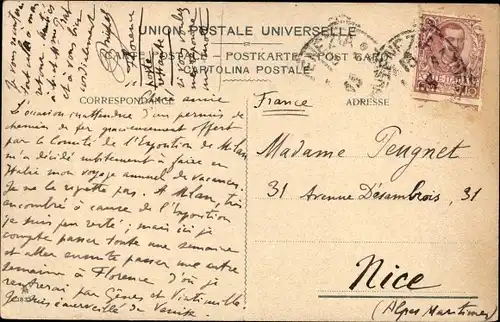 UNION POSTALE UNIVERSELLE
CARTE POSTALE - POSTKARTE - POST CARD
CARTOLINA POSTALE
CORRESPONDANCE
ADRESSE
Chère amie
L'occasion inattendue d'un permis de
chemins de fer gracieusement offert
par le Comité de l'Exposition de Milan
m'a décidé subitement à faire en
Italie mon voyage annuel de vacances.
Je ne le regrette pas. A Milan, très
encombré à cause de l'Exposition
je suis peu resté; mais ici je
compte passer toute une semaine
et aller ensuite passer une autre
semaine à Florence d'où je
rentrerai par Gênes et Vintimille.
Je suis émerveillé de Venise.
France
Madame Peugnet
31 Avenue Désambrois, 31
Nice
(Alpes Maritimes)